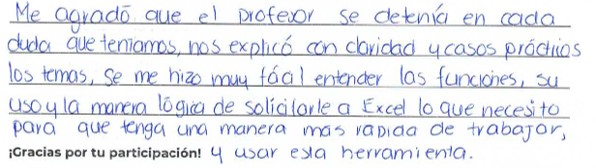 Me agradó que el profesor se detenía en cada
duda que teníamos, nos explicó con claridad y casos prácticos
los temas, se me hizo muy fácil entender las funciones, su
uso y la manera lógica de solicitarle a Excel lo que necesito
para que tenga una manera mas rapida de trabajar,
¡Gracias por tu participación! y usar esta herramienta.